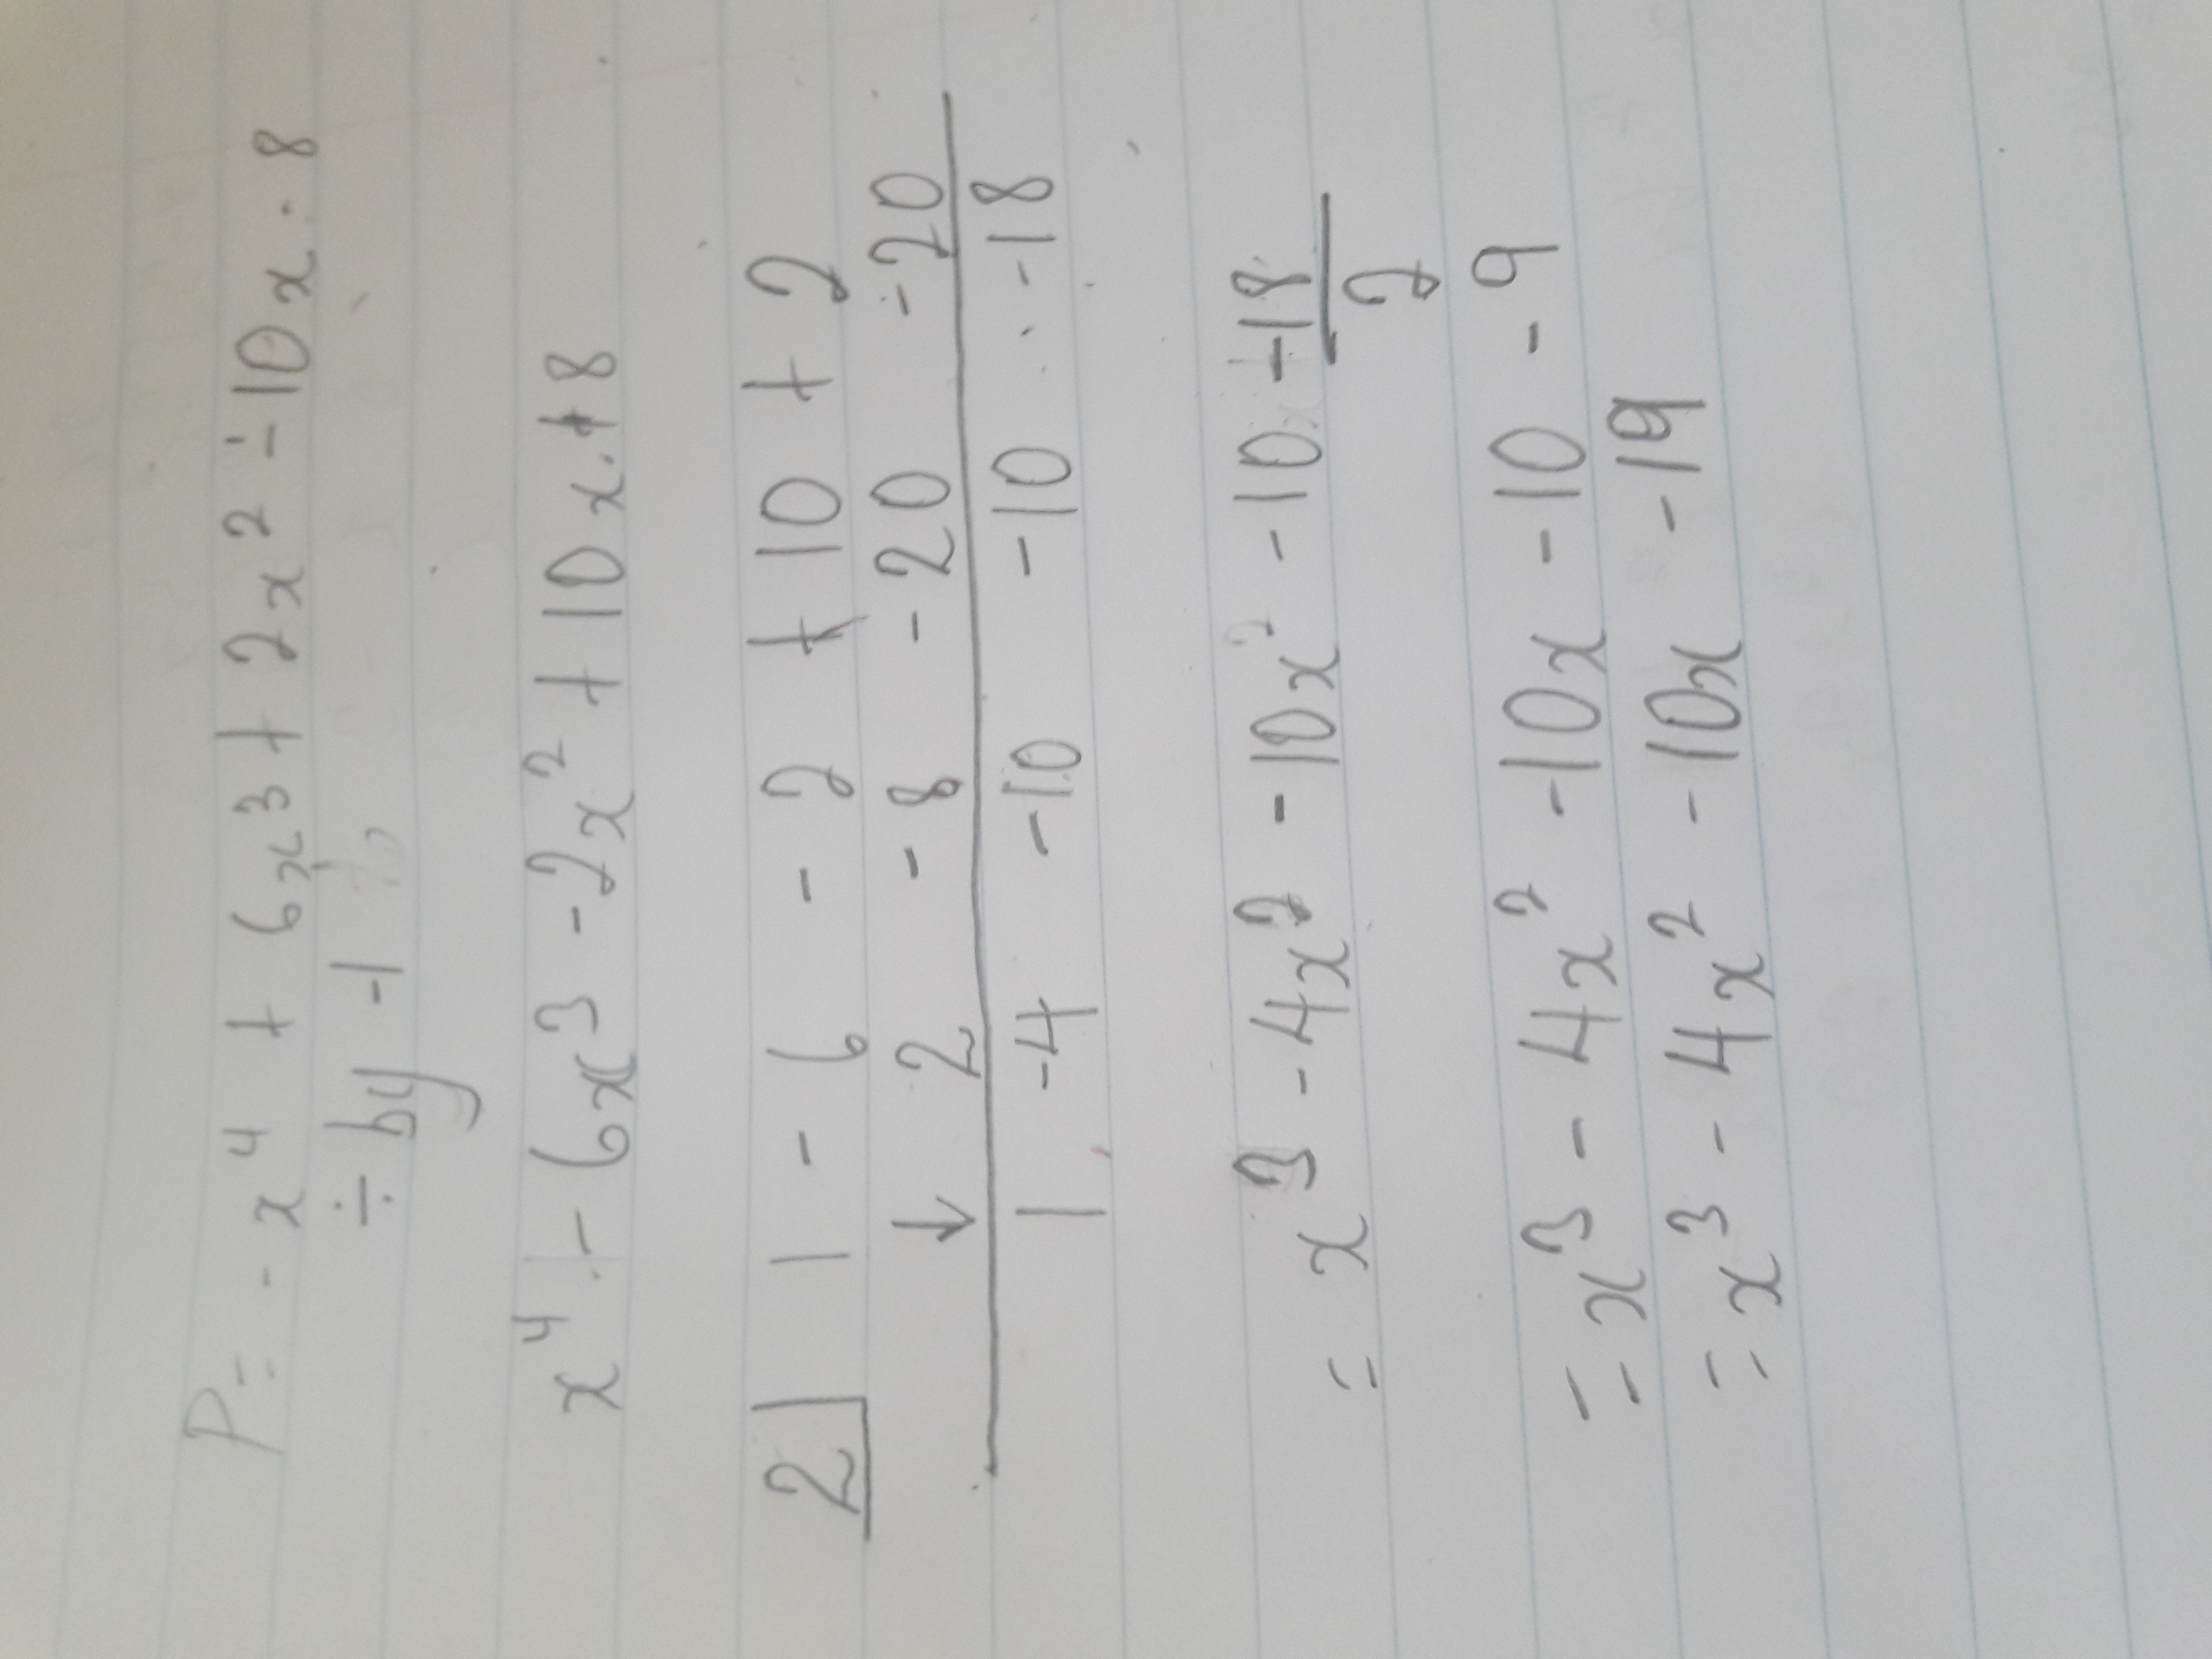 P = - x⁴ + 6x³ + 2x² - 10x - 8
÷ by -1
x⁴ - 6x³ - 2x² + 10x + 8
2 | 1 - 6 - 2 + 10 + 2
↓ 2 - 8 - 20 - 20
1 -4 -10 -10 -18
= x³ - 4x² - 10x² - 10 -18
2
= x³ - 4x² - 10x - 10 - 9
= x³ - 4x² - 10x - 19